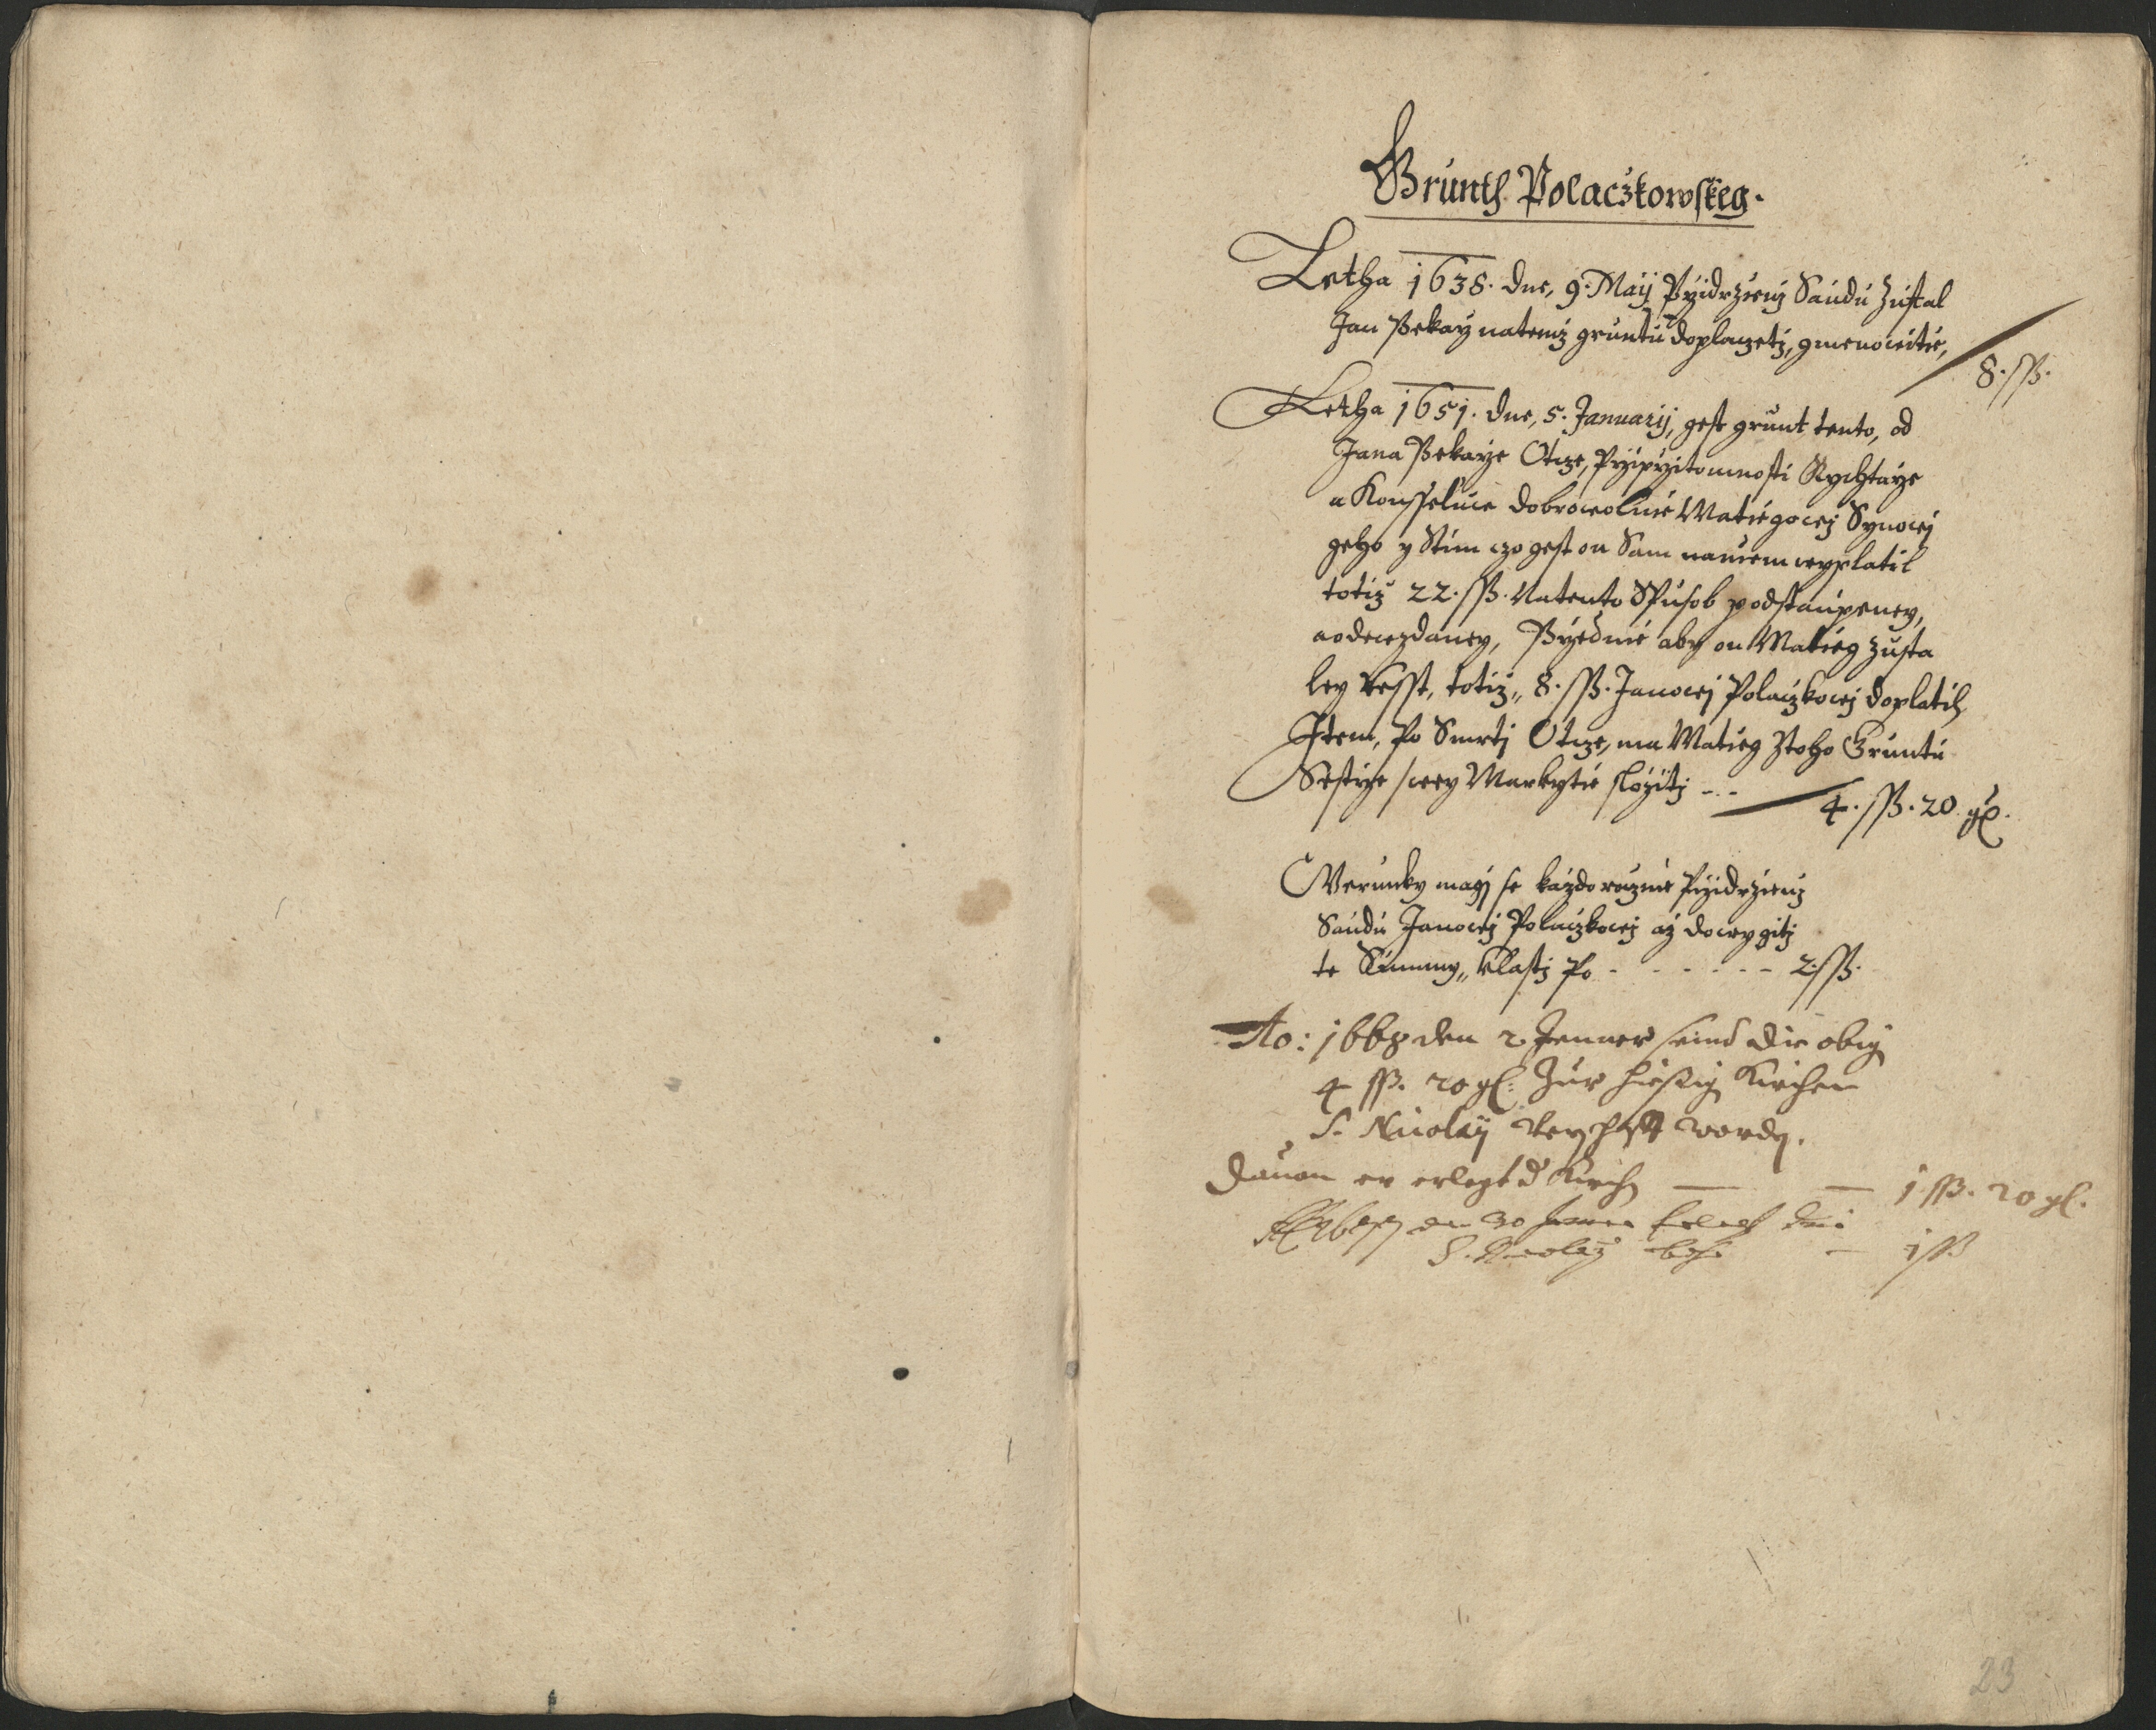 Grunth Polaczkowskeg.
Letha 1638. dne, 9. Maÿ Przidrzienj Saudu Zustal
Jan Pekarz natemz gruntu doplaczetj, gmenowitie,
8. ſſß.
Letha 1651. dne, 5. Januarij, gest grunt tento, od
Jana Pekarze Otcze, Przipritomnosti Rychtarze
a Konsseluw dobrowolnie Matiegowj Synowj
geho y Stim czo gest on Sam naniem wyplatil
totiz 22. ſſß. Natento Spusob podstaupeney,
aodewzdaney, Przednie aby on Matieg zusta
ley Resst, totiz, 8. ſſß. Janowj Polaczkowj doplatil,
Item, Po Smrtj Otcze, ma Matieg Ztoho Gruntu
Sestrze swey Markytie slozitj - . - 4. ſſß. 20 gl.
Werunky magj se kazdorocznie Przidrzienj
Saudu Janowj Polaczkowj az dowygitj
te Summy, klastj Po - - - - - - 2 ſſß.
Ao: 1668 den 2 Jenner seind die obig
4 ſſß. 20 gl: Zur hiesig Kirchen
S. Nicolaÿ worden.
Dauon er erlegt d Kirch — — 1 ſſß. 20 gl.
den 30 Jenner erlegt
S. Nicolaÿ — 1 ſſß
23